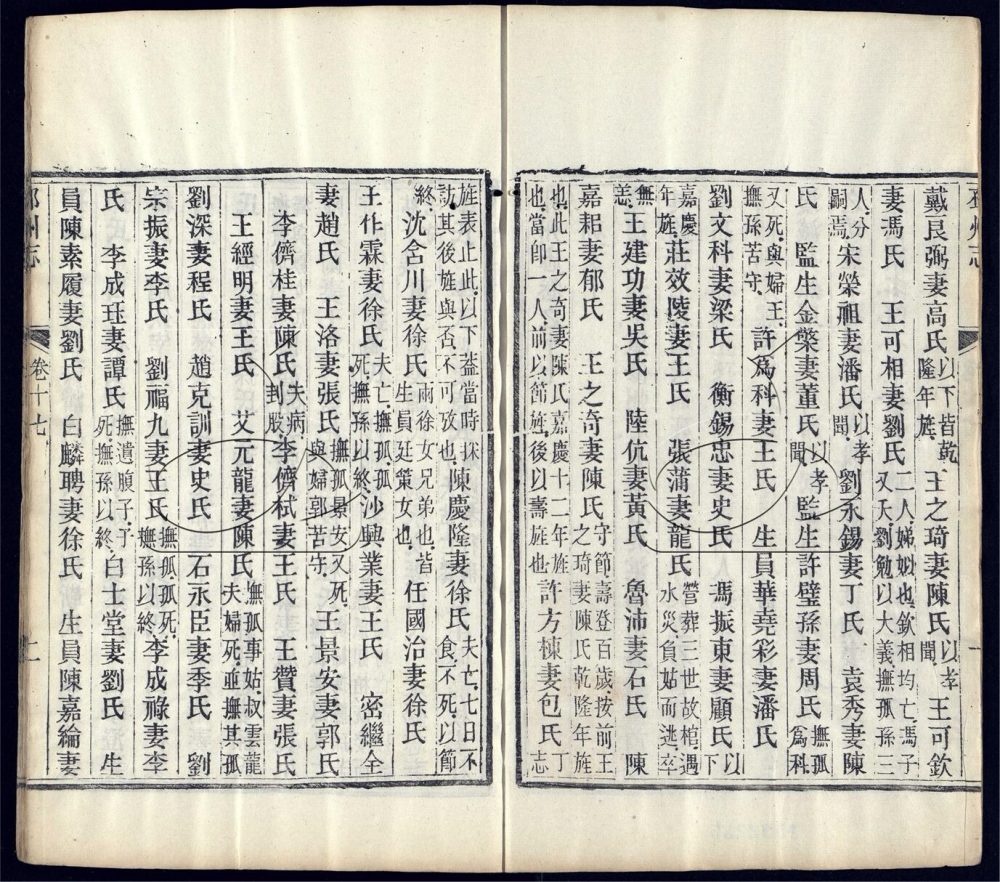 邳州志
戴良弼妻高氏以下皆乾隆年旌王之琦妻陳氏以孝聞王可欽
妻馮氏王可相妻劉氏二人娣姒也欽相均亡馮子又夭劉勉以大義撫孤孫三
人分嗣焉宋榮祖妻潘氏以孝聞劉永錫妻丁氏袁秀妻陳
氏監生金榮妻董氏以孝聞監生許璧孫妻周氏撫孤爲科
又死與婦王撫孫苦守許爲科妻王氏生員華堯彩妻潘氏
劉文科妻梁氏衡錫忠妻史氏馮振東妻顧氏以下
嘉慶年旌莊效陵妻王氏張蒲妻龍氏營葬三世故棺遇水災負姑而逃卒
無恙王建功妻吳氏陸伉妻黃氏魯沛妻石氏陳
嘉耜妻郁氏王之奇妻陳氏守節壽登百歲按前王之琦妻陳氏乾隆年旌
也此王之奇妻陳氏嘉慶十二年旌也當即一人前以節旌後以壽旌也許方棟妻包氏志
丁
旌表止此以下葢當時採訪其後旌與否不可攷也陳慶隆妻徐氏夫亡七日不食不死以節
終沈含川妻徐氏兩徐女兄弟也皆生員廷策女也任國治妻徐氏
王作霖妻徐氏夫亡撫孤孤死撫孫以終沙興業妻王氏密繼全
妻趙氏王洛妻張氏撫孤景安又死與婦郭苦守王景安妻郭氏
李儕桂妻陳氏夫病刲股李儕栻妻王氏王贊妻張氏
王經明妻王氏艾元龍妻陳氏撫孤事姑叔雲龍夫婦死並撫其孤
劉深妻程氏趙克訓妻史氏石永臣妻李氏劉
宗振妻李氏劉福九妻王氏撫孤孤死撫孫以終李成祿妻李
氏李成珏妻譚氏撫遺腹子子死撫孫以終白士堂妻劉氏生
員陳素履妻劉氏白麟聘妻徐氏生員陳嘉綸妻
邳州志
卷十七